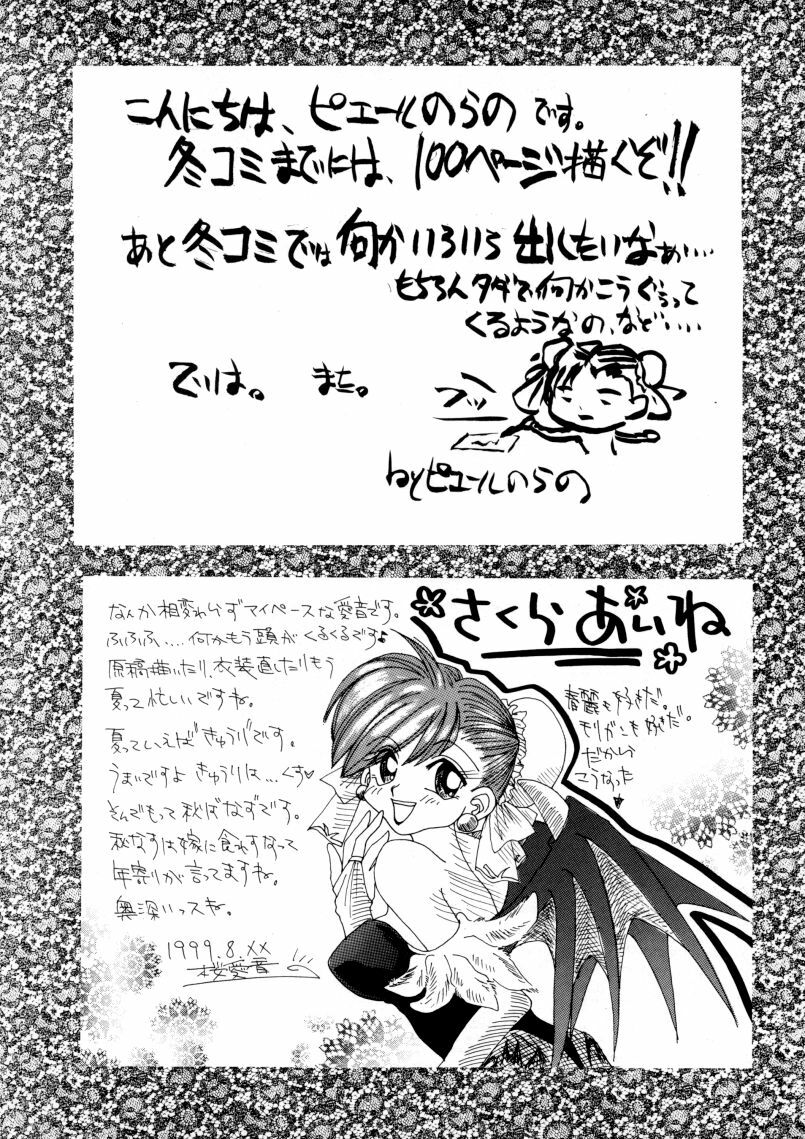 こんにちは、ピエールのらのです。
冬コミまでには、100ページ描くぞ!!
あと冬コミでは何かいろいろ出したいなぁ…
もちろんタダで何かこうぐぅって
くるようなの、など・・・・
では。 また。
プッ
byピエールのらの
さくら あいね
なんか相変わらずマイペースな愛音です。
ふふふ....何かもう頭がくるくるです♪
原稿描いたり、衣装直したりもう
夏って忙しいですね。
夏っていえばきゅうりです。
うまいですよ きゅうりは…くす♡
さんでもって秋ばなずです。
秋なすは嫁に食わすなって
年寄りが言ってますね。
奥深いっスね。
1999.8.XX
桜愛音
春麗も好きだ。
モリガンも好きだ。
だから
こうなった